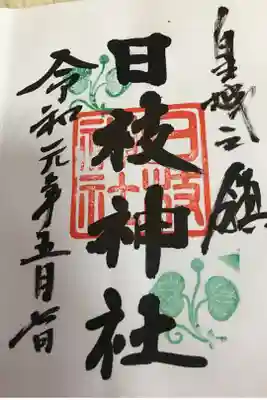 皇城之鎮
日枝神社
日枝
神社
令和元年五月日